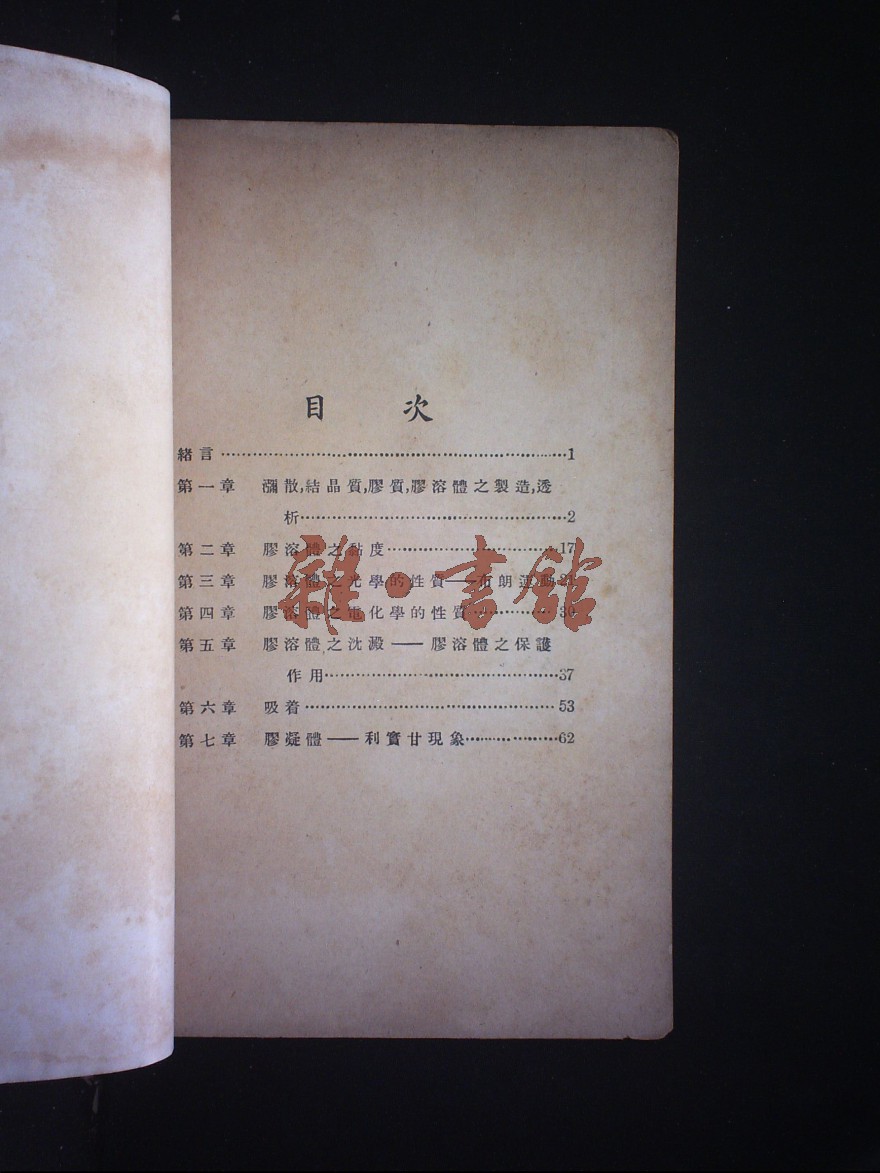 目次
緒言⋯⋯⋯⋯⋯⋯⋯⋯⋯⋯⋯⋯1
第一章 瀰散,結晶質,膠質,膠溶體之製造,透
析⋯⋯⋯⋯⋯⋯⋯⋯⋯⋯⋯⋯2
第二章 膠溶體之黏度⋯⋯⋯⋯⋯⋯17
第三章 膠溶體之光學的性質——布朗運動21
第四章 膠溶體之電化學的性質⋯⋯⋯30
第五章 膠溶體之沈澱——膠溶體之保護
作用⋯⋯⋯⋯⋯⋯⋯⋯⋯⋯37
第六章 吸着⋯⋯⋯⋯⋯⋯⋯⋯⋯⋯53
第七章 膠凝體——利實甘現象⋯⋯⋯62
雜·書館